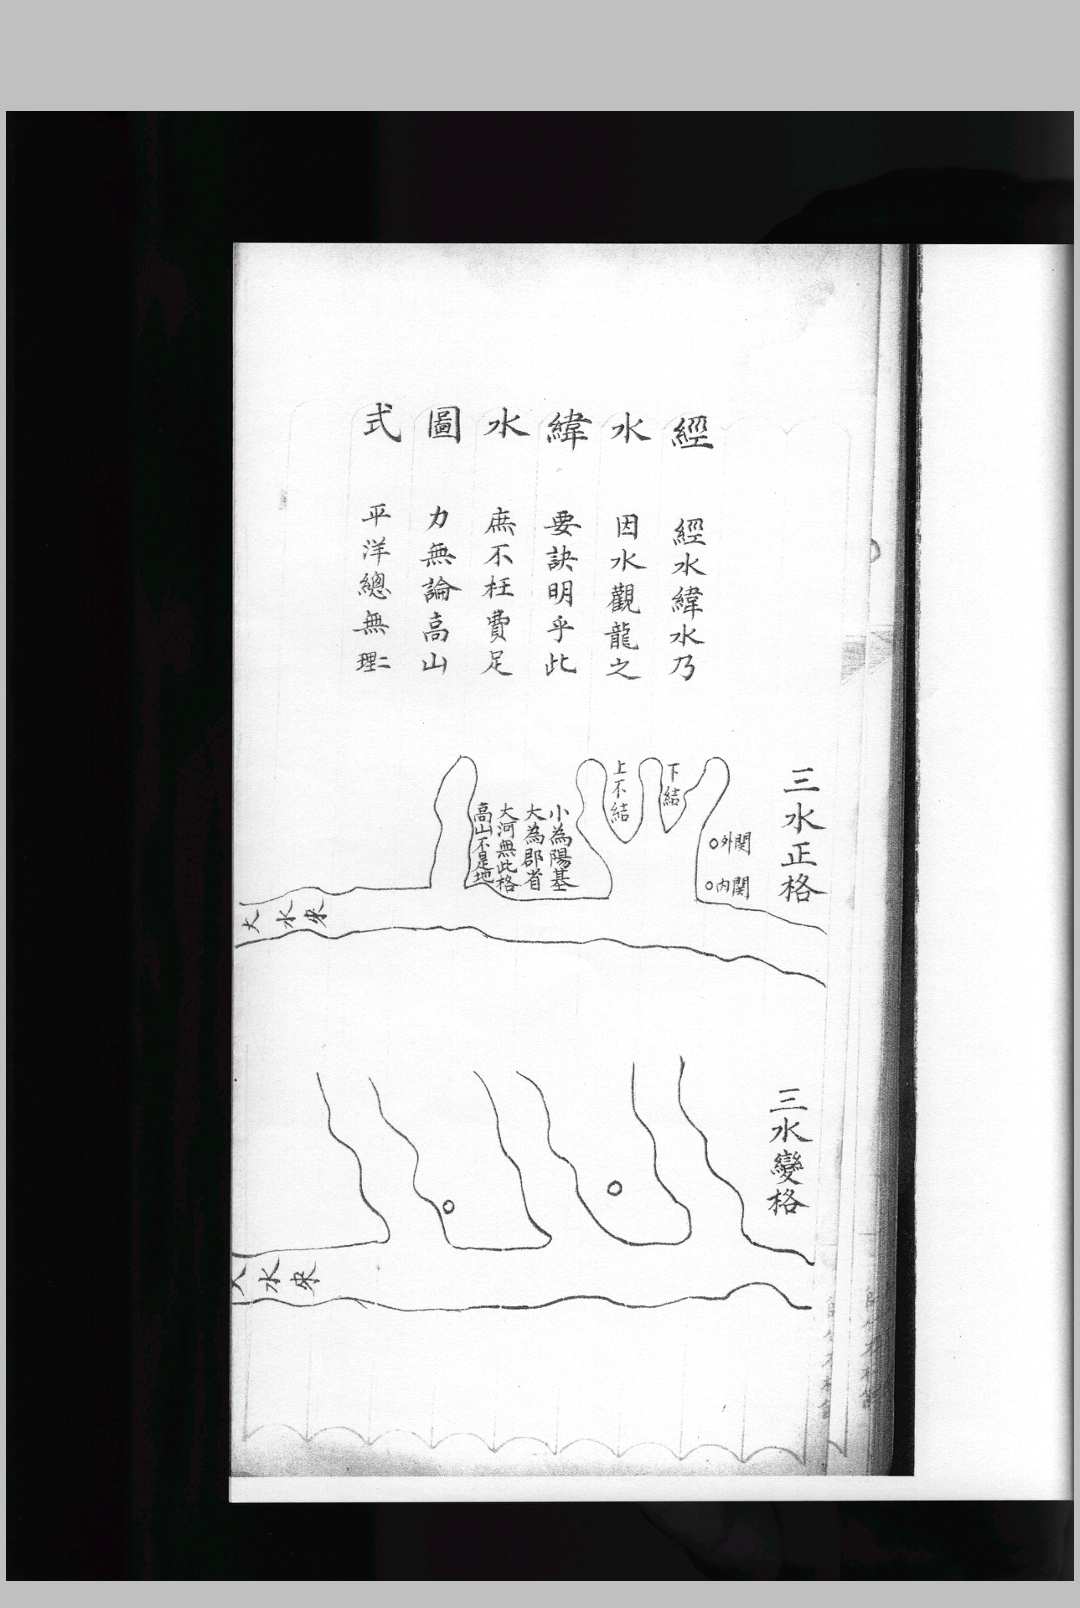 經水緯水圖式
經水緯水乃
因水觀龍之
要訣明乎此
庶不枉費足
力無論高山
平洋總無二理
三水正格
外関
内関
下結
上不結
小為陽基
大為郡省
大河無此格
高山不是地
大水來
三水變格
大水來